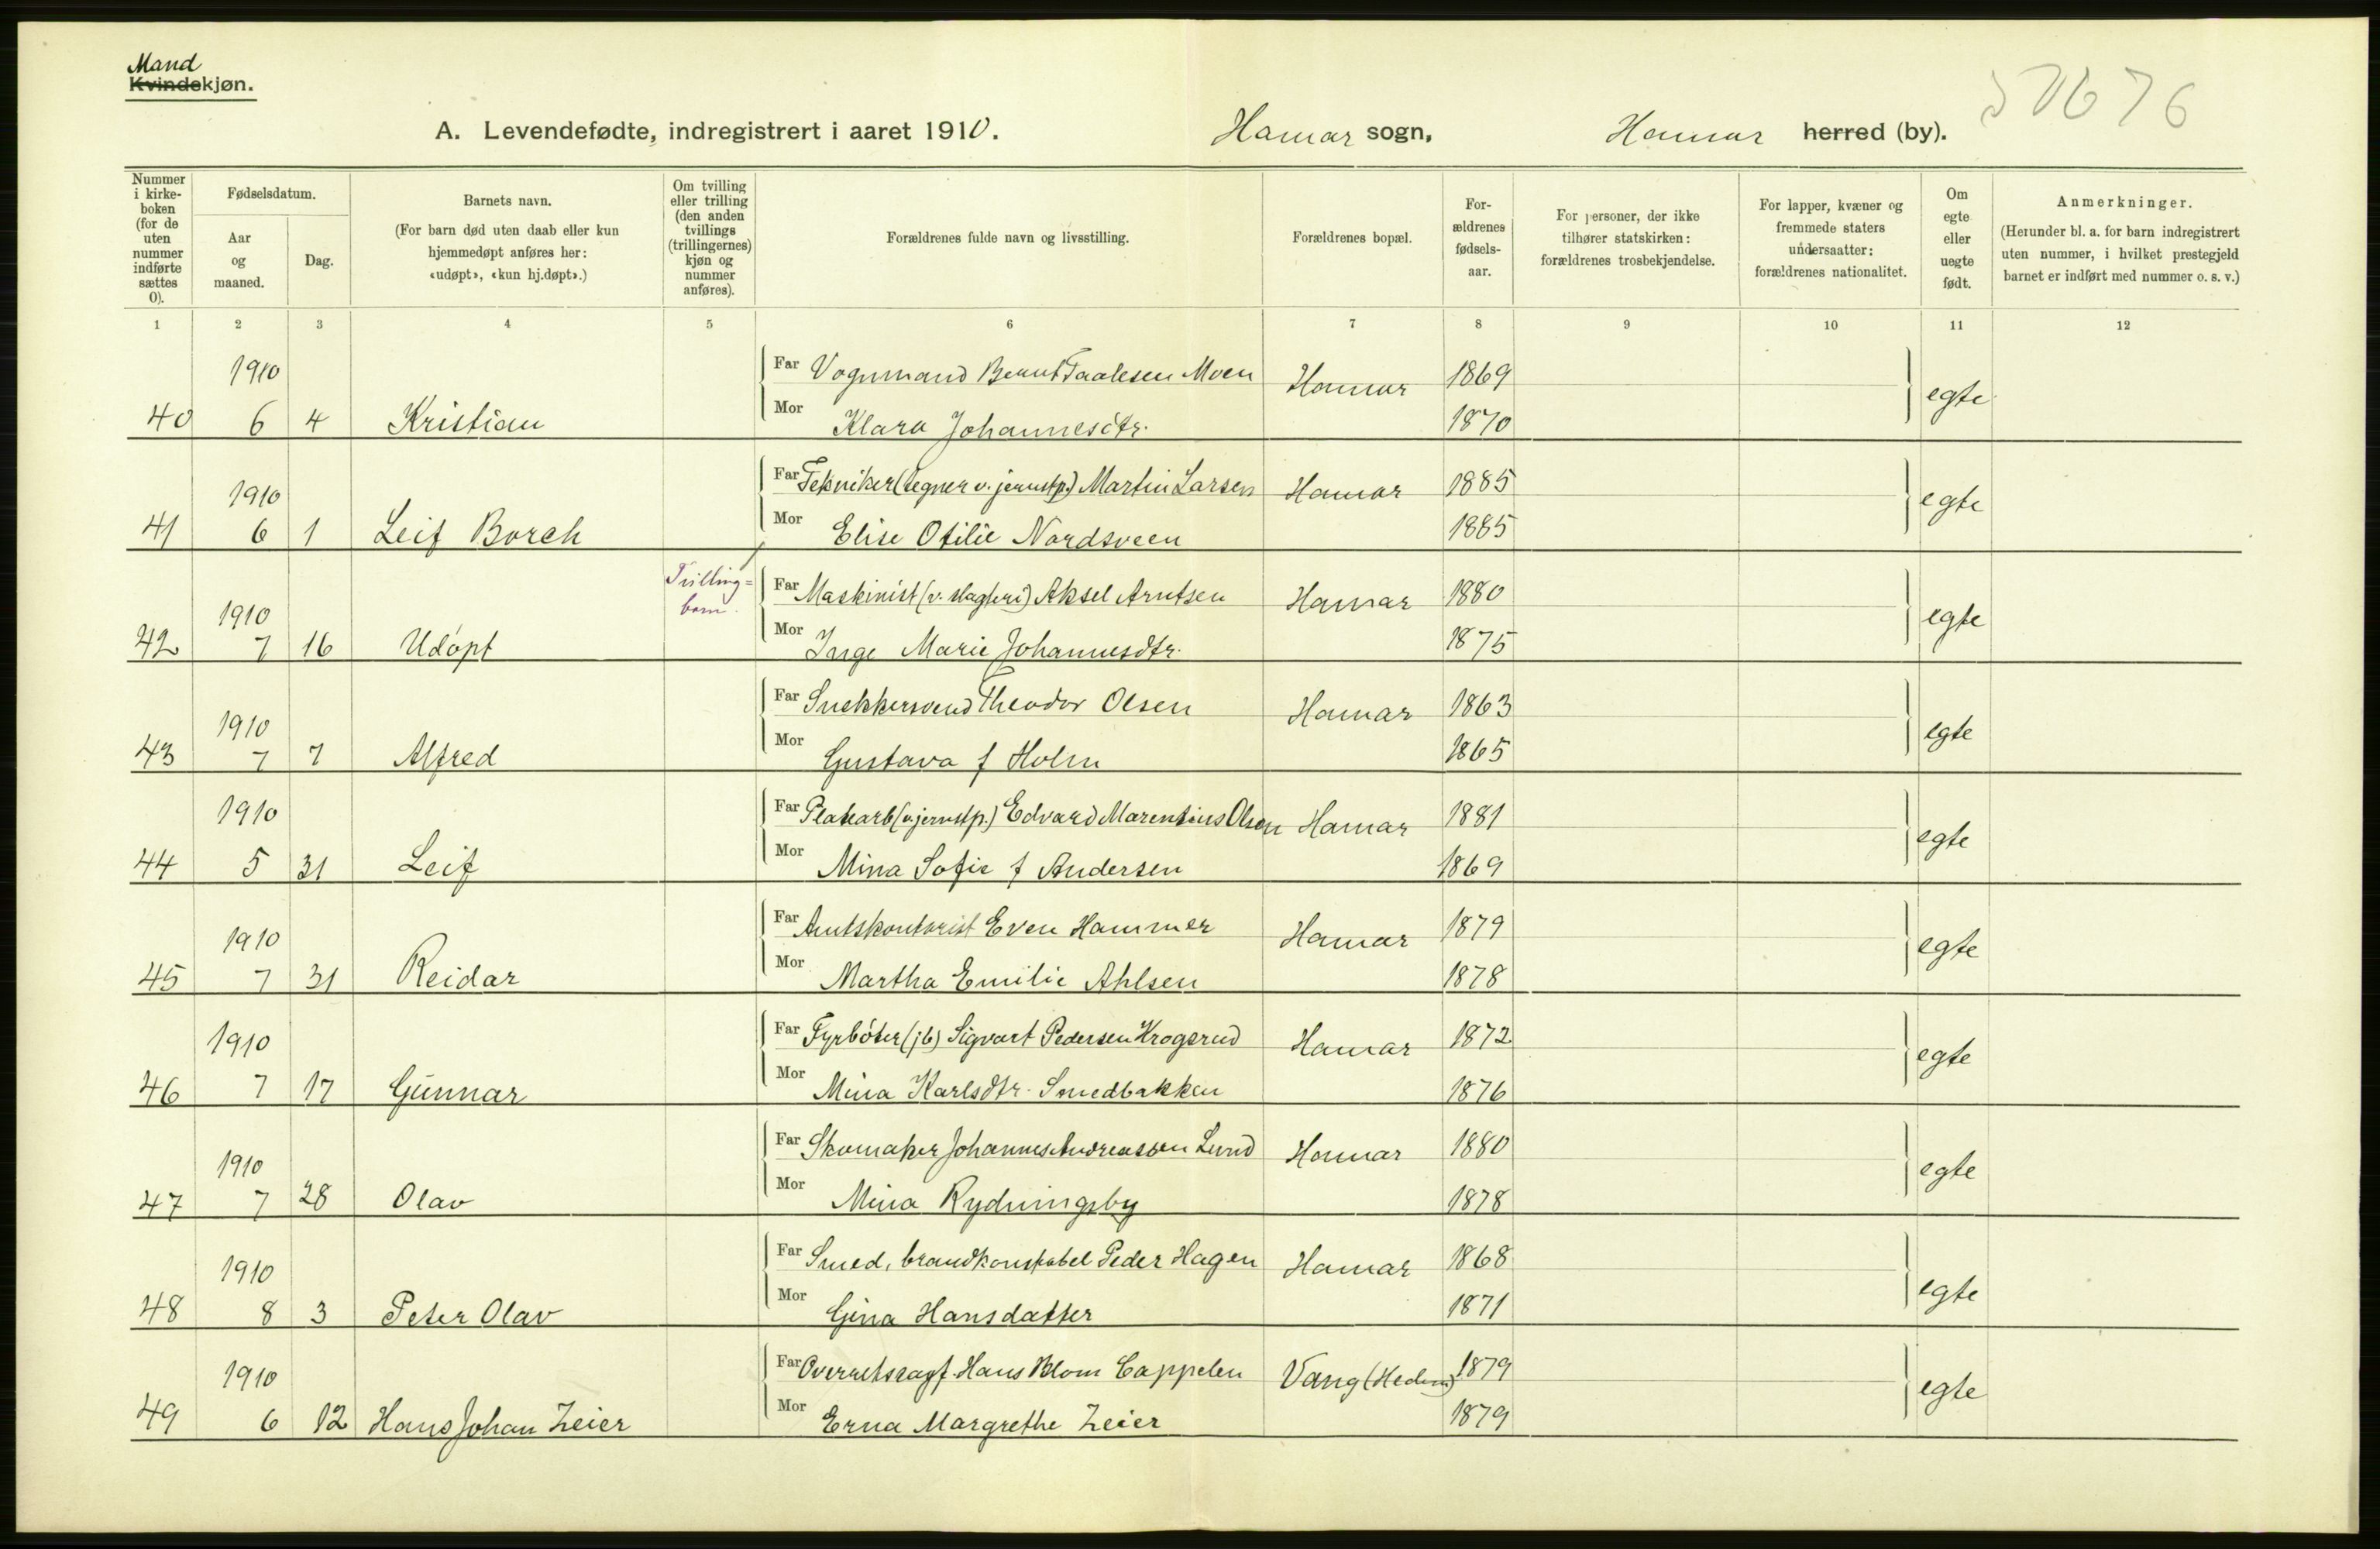 Mand
Kvindekjøn.
A. Levendefødte, indregistrert i aaret 1910. Hamar sogn, Hamar herred (by).
Nummer i kirkeboken (for de uten nummer indførte sættes 0).
Fødselsdatum.
Aar og maaned.
Dag.
Barnets navn.
(For barn død uten daab eller kun hjemmedøpt anføres her: «udøpt», «kun hj.døpt».)
Om tvilling eller trilling (den anden tvillings (trillingernes) kjøn og nummer anføres).
Forældrenes fulde navn og livsstilling.
Forældrenes bopæl.
Forældrenes fødselsaar.
For personer, der ikke tilhører statskirken: forældrenes trosbekjendelse.
For lapper, kvæner og fremmede staters undersaatter: forældrenes nationalitet.
Om egte eller uegte født.
Anmerkninger.
(Herunder bl. a. for barn indregistrert uten nummer, i hvilket prestegjeld barnet er indført med nummer o. s. v.)
1 2 3 4 5 6 7 8 9 10 11 12
1910 Far Vognmand Bernt Taalesen Moen Hamar 1869 egte
40 6 4 Kristian Mor Klara Johannesdtr. 1870
1910 Far Tekniker (tegner v. jernstøp.) Martin Larsen Hamar 1885 egte
41 6 1 Leif Borch Mor Elise Otilie Nordsveen 1885
Trilling=
barn.
1910 Far Maskinist (v. slagteri) Aksel Arntsen Hamar 1880 egte
42 7 16 Udøpt Mor Inge Marie Johannesdtr. 1875
1910 Far Snekkersvend Theodor Olsen Hamar 1863 egte
43 7 7 Alfred Mor Gustava f Holm 1865
1910 Far Platearb (v. jernstøp.) Edvard Marentius Olsen Hamar 1881 egte
44 5 31 Leif Mor Mina Sofie f Andersen 1869
1910 Far Amtskontorist Even Hammer Hamar 1879 egte
45 7 31 Reidar Mor Martha Emilie Ahlsen 1878
1910 Far Fyrbøter (jb) Sigvart Pedersen Krogsrud Hamar 1872 egte
46 7 17 Gunnar Mor Mina Karlsdtr. Smedbakken 1876
1910 Far Skomaker Johannes Andreassen Lund Hamar 1880 egte
47 7 28 Olav Mor Mina Rydningsby 1878
1910 Far Smed, brandkonstabel Peder Hagen Hamar 1868 egte
48 8 3 Peter Olav Mor Gina Hansdatter 1871
1910 Far Overretssagf. Hans Blom Cappelen Vang (Hedm) 1879 egte
49 6 12 Hans Johan Zeier Mor Erna Margrethe Zeier 1879